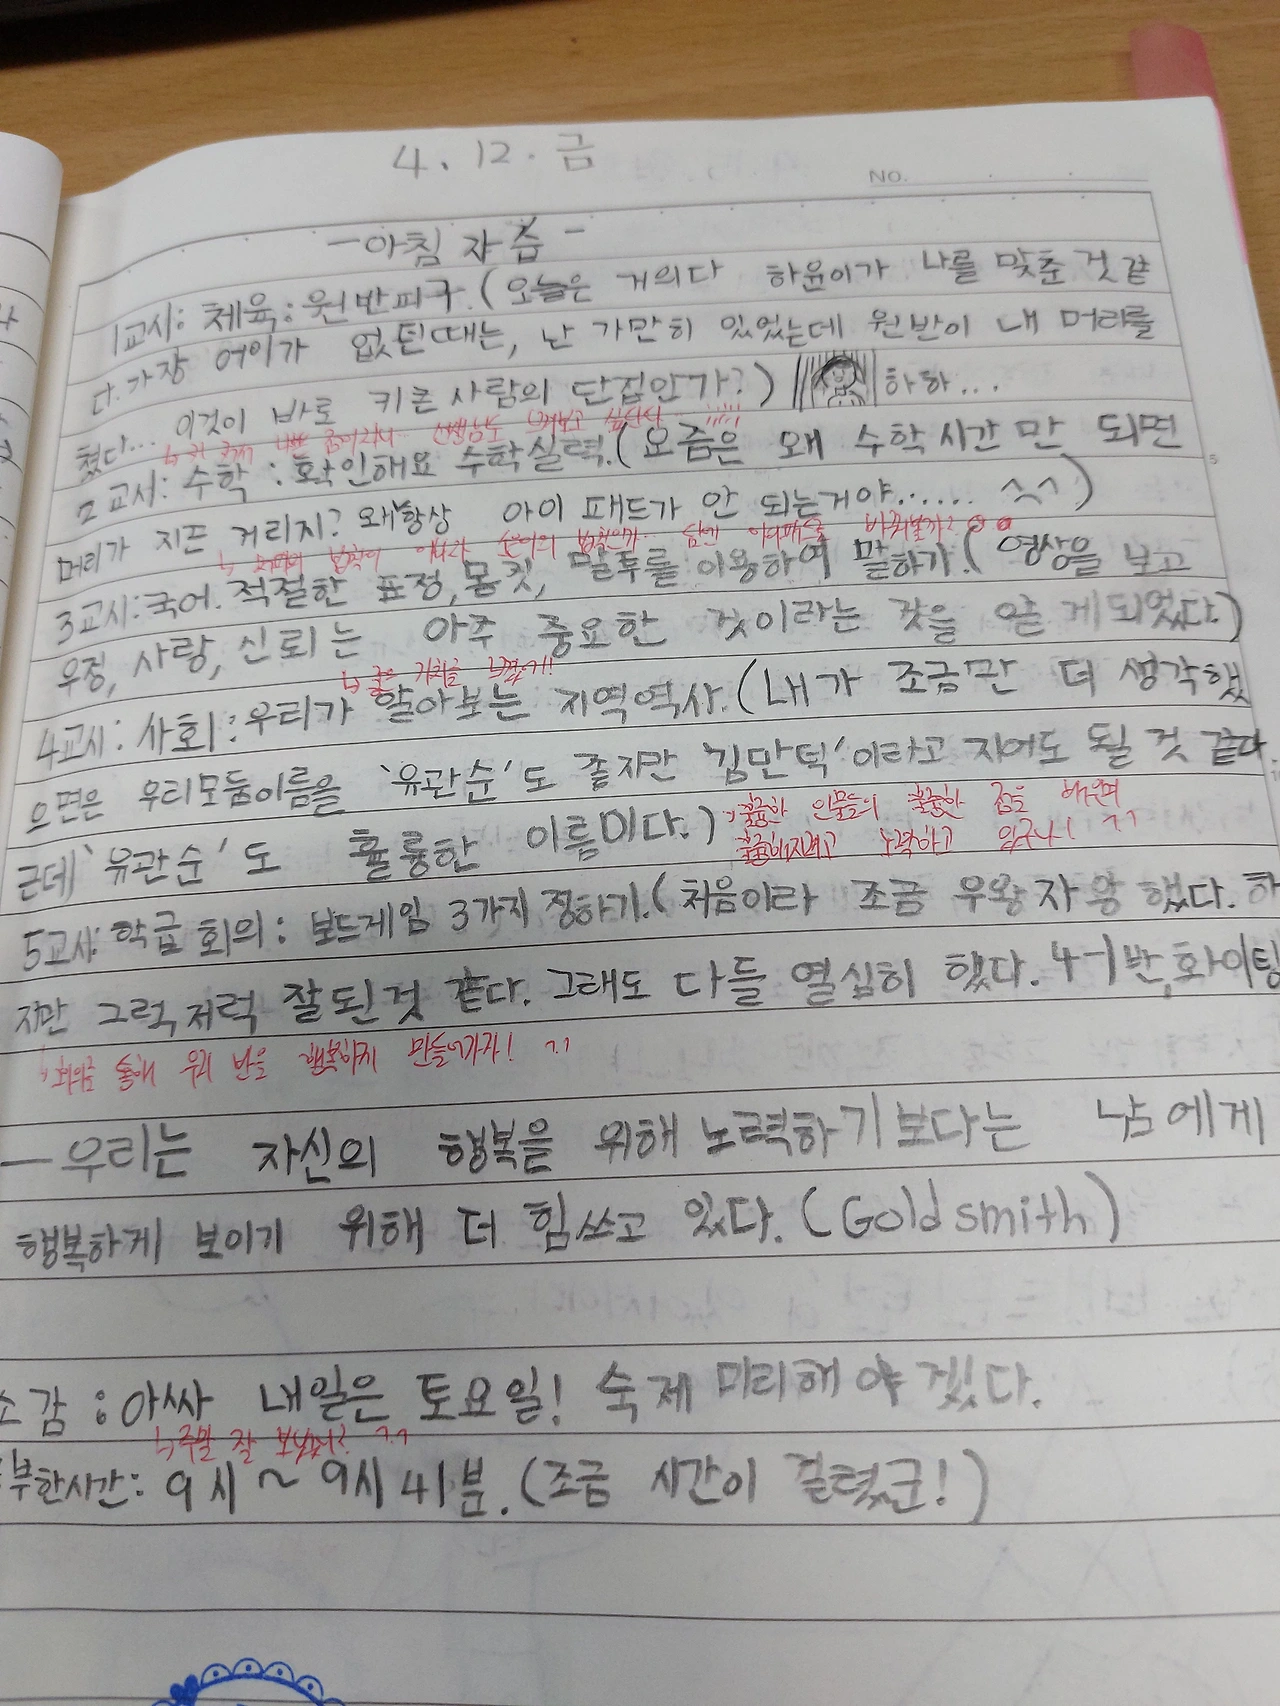 4. 12. 금
NO.
-아침 자습-
1교시: 체육: 원반피구.(오늘은 거의다 하윤이가 나를 맞춘 것 같
다. 가장 어이가 없던때는, 난 가만히 있었는데 원반이 내 머리를
쳤다... 이것이 바로 키큰 사람의 단접인가?) 하하...
선생님도 느껴보고 싶구나
2교시: 수학: 확인해요 수학실력.(요즘은 왜 수학시간만 되면
머리가 지끈 거리지? 왜항상 아이 패드가 안 되는거야...... ^^)
3교시:국어. 적절한 표정, 몸짓, 말투를 이용하여 말하기.(영상을 보고
우정, 사랑, 신뢰는 아주 중요한 것이라는 것을 알 게되었다.)
↳좋은 가치를
4교시: 사회: 우리가 알아보는 지역역사.(내가 조금만 더 생각했
으면은 우리모둠이름을 '유관순'도 좋지만 '김만덕'이라고 지어도 될 것 같다.
근데 '유관순'도 훌륭한 이름이다.)
훌륭한 인물들의 훌륭한 점을 배우며
훌륭해지려고 노력하고 있구나! ^^
5교시: 학급 회의: 보드게임 3가지 정하기.(처음이라 조금 우왕자왕 했다. 하
지만 그럭저럭 잘된것 같다. 그래도 다들 열심히 했다. 4-1반, 화이팅
↳회의를 통해 우리 반을 행복하게 만들어가자! ^^
-우리는 자신의 행복을 위해 노력하기보다는 남에게
행복하게 보이기 위해 더 힘쓰고 있다.(Goldsmith)
소감: 아싸 내일은 토요일! 숙제 미리해 야 겠다.
↳주말 잘 보냈어? ^^
부한시간: 9시~9시41분.(조금 시간이 걸렸군!)